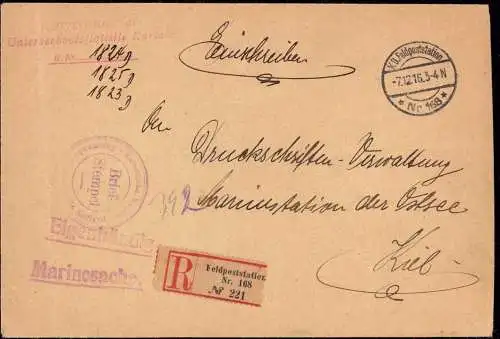 Unterseebootsflottille Kurland
1824 g
1825 g
1823 g
Einschreiben
K.D. Feldpoststation
-7.12.16.3-4N
* Nr. 168 *
An
Druckschriften-Verwaltung
Marinestation der Ostsee
Kiel
Brief-
Stempel
792
Eigenhändig
Marinesache.
R
Feldpoststation.
Nr. 168
№ 221